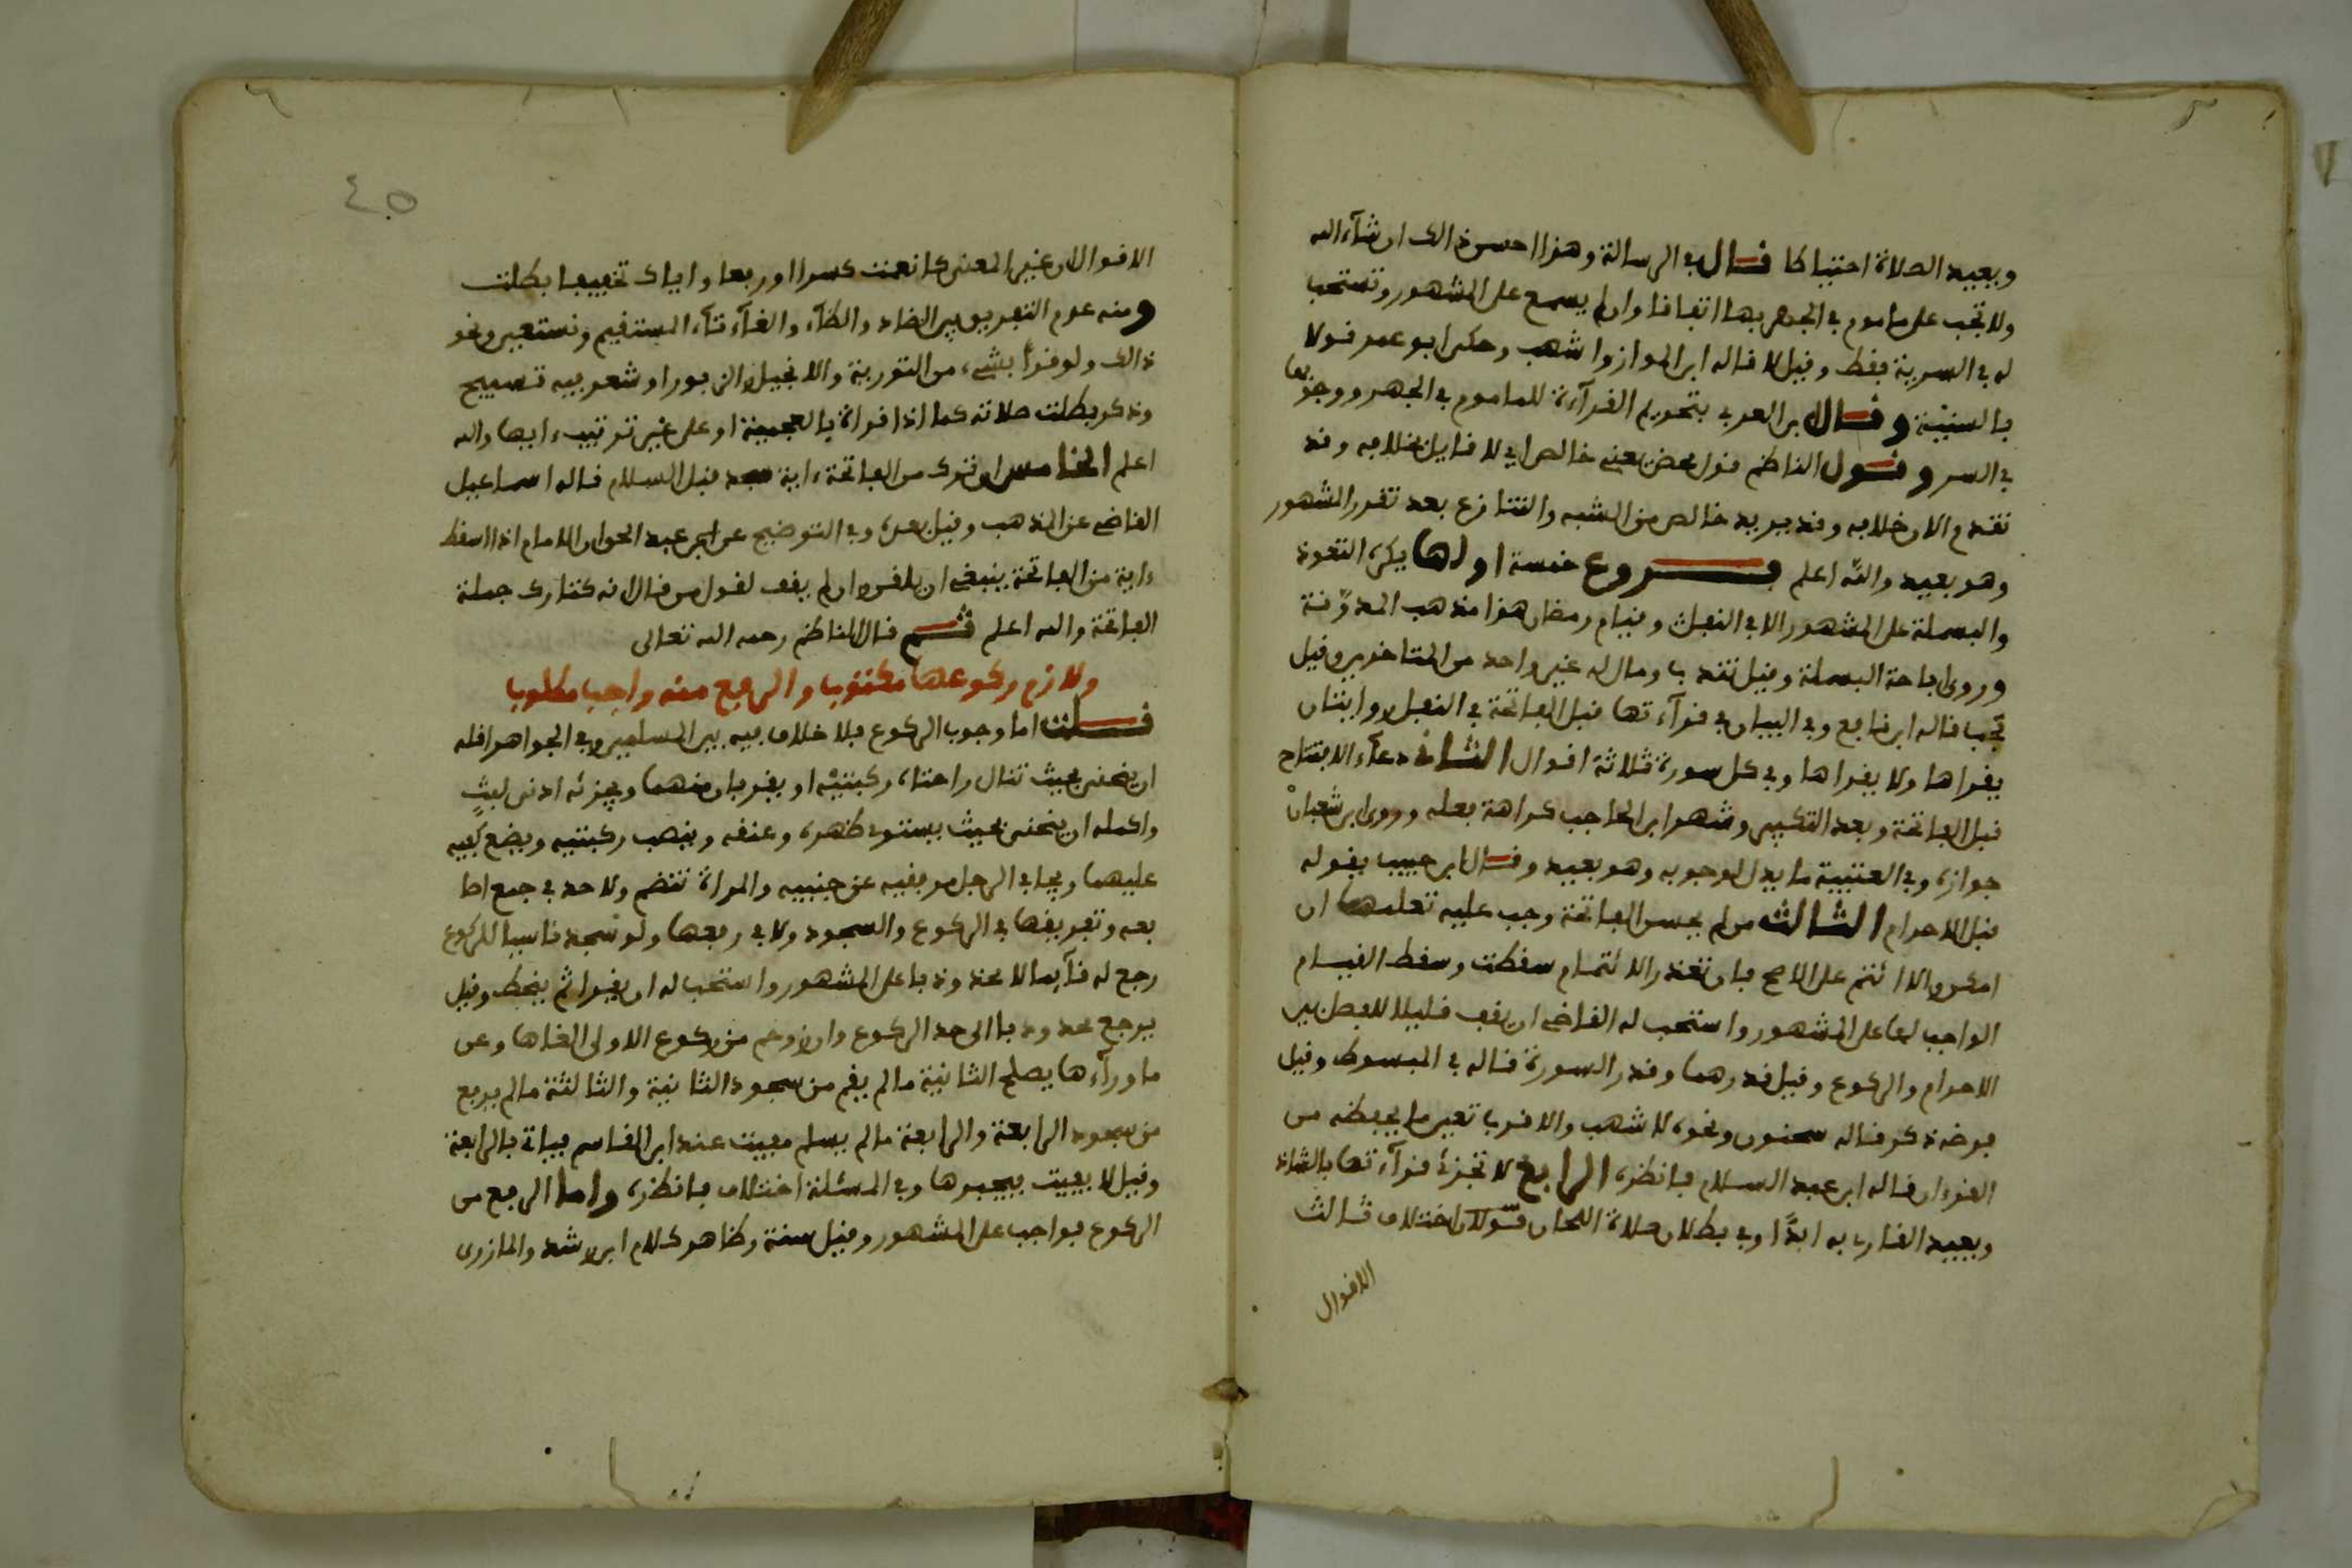 ويعيد الصلاة احتياطا قال في الرسالة وهذا احسن ذالك ان شآء الله
ولا تجب على ماموم في الجهر بها اتفاقا وان لم يسمع على المشهور وتستحب
له في السرية فقط وقيل لا قاله ابن المواز واشهب وحكى ابو عمر قولا
بالسنية وقال ابن العربي بتحريم القرآءة للماموم في الجهر ووجوبها
في السر وقول الناظم قول محض يعني خالص اي لا قايل بخلافه وقد
تقدم الان خلافه وقد يريد خالص من الشبه والتنازع بعد تقرر المشهور
وهو بعيد والله اعلم فروع خمسة اولها يكره التعوذ
والبسملة على المشهور الا في النفل وقيام رمضان هذا مذهب المدونة
وروى اباحة البسملة وقيل تندبا ومال له غير واحد من المتاخرين وقيل
تجب قاله ابن نافع وفي البيان في قرآءتها قبل الفاتحة في النفل روايتان
يقراها ولا يقراها وفي كل سورة ثلاثة اقوال الثاني دعآء الافتتاح
قبل الفاتحة وبعد التكبير وشهر ابن الحاجب كراهة فعله وروى ابن شعبان
جوازه وفي العتبية ما يدل لوجوبه وهو بعيد وقال ابن حبيب يقوله
قبل الاحرام الثالث من لم يحسن الفاتحة وجب عليه تعلمها ان
امكن والا ائتم على الاصح فان تعذر الائتمام سقطت وسقط القيام
الواجب لها على المشهور واستحب له القاضي ان يقف قليلا للفصل بين
الاحرام والركوع وقيل قدرها وقدر السورة قاله في المبسوط وقيل
فرضه ذكر قاله سحنون ونحوه لاشهب والاقرب تعين ما يحفظه من
القرءان قاله ابن عبد السلام فانظره الرابع لا تجزئ قرآءتها بالشاذ
ويعيد القارئ به ابدًا وفي بطلان صلاة اللحان قولان اختلاف ثالث
الاقوال
٤٥
الاقوال ان غير المعنى كانعمت كسرا او رفعا واياك تخفيفا بطلت
ومنه عدم التفريق بين الضاد والظآء والغآء تآء المستقيم ونستعين ونحو
ذالك ولو قرأ بشيء من التورية والانجيل والزبور او شعر فيه تسبيح
وذكر بطلت صلاته كما اذا قرا بالعجمية او على غير ترتيبء ايها والله
اعلم الخامس لو ترك من الفاتحة ءاية سجد قبل السلام قاله اسماعيل
القاضي عن المذهب وقيل بعده وفي التوضيح عن ابن عبد الحق ان الامام اذا اسقط
ءاية من الفاتحة ينبغي ان يلقن وان لم يقف لقول من قال انه كتارك جملة
الفاتحة والله اعلم ثم قال الناظم رحمه الله تعالى
ولازم ركوعها مكتوبا والرفع منه واجب مطلوبا
قلت اما وجوب الركوع فلا خلاف فيه بين المسلمين وفي الجواهر اقله
ان ينحني بحيث تنال راحتاه ركبتيه او يقربان منهما ويجزئه ادنى لبثٍ
واكمله ان ينحني بحيث يستوي ظهره وعنقه وينصب ركبتيه ويضع كفيه
عليهما ويجافي الرجل مرفقيه عن جنبيه والمراة تنضم ولا حد في جمع اصا
بعه وتفريقها في الركوع والسجود ولا في رفعها ولو سجد ناسيا للركوع
رجع له قآيما لا محدودبا على المشهور واستحب له ان يقرا ثم ينحط وقيل
يرجع محدودبا الى حد الركوع وان زوحم من ركوع الاولى الغاها وعن
ما ورآءها يصلح الثانية ما لم يقم من سجود الثانية والثالثة ما لم يرفع
من سجود الرابعة والرابعة ما لم يسلم مفيت عند ابن القاسم فياتي بالرابعة
وقيل لا يفيت فيجبرها وفي المسئلة اختلاف فانظره واما الرفع من
الركوع فواجب على المشهور وقيل سنة وكذا هو كلام ابن رشد والمازرى